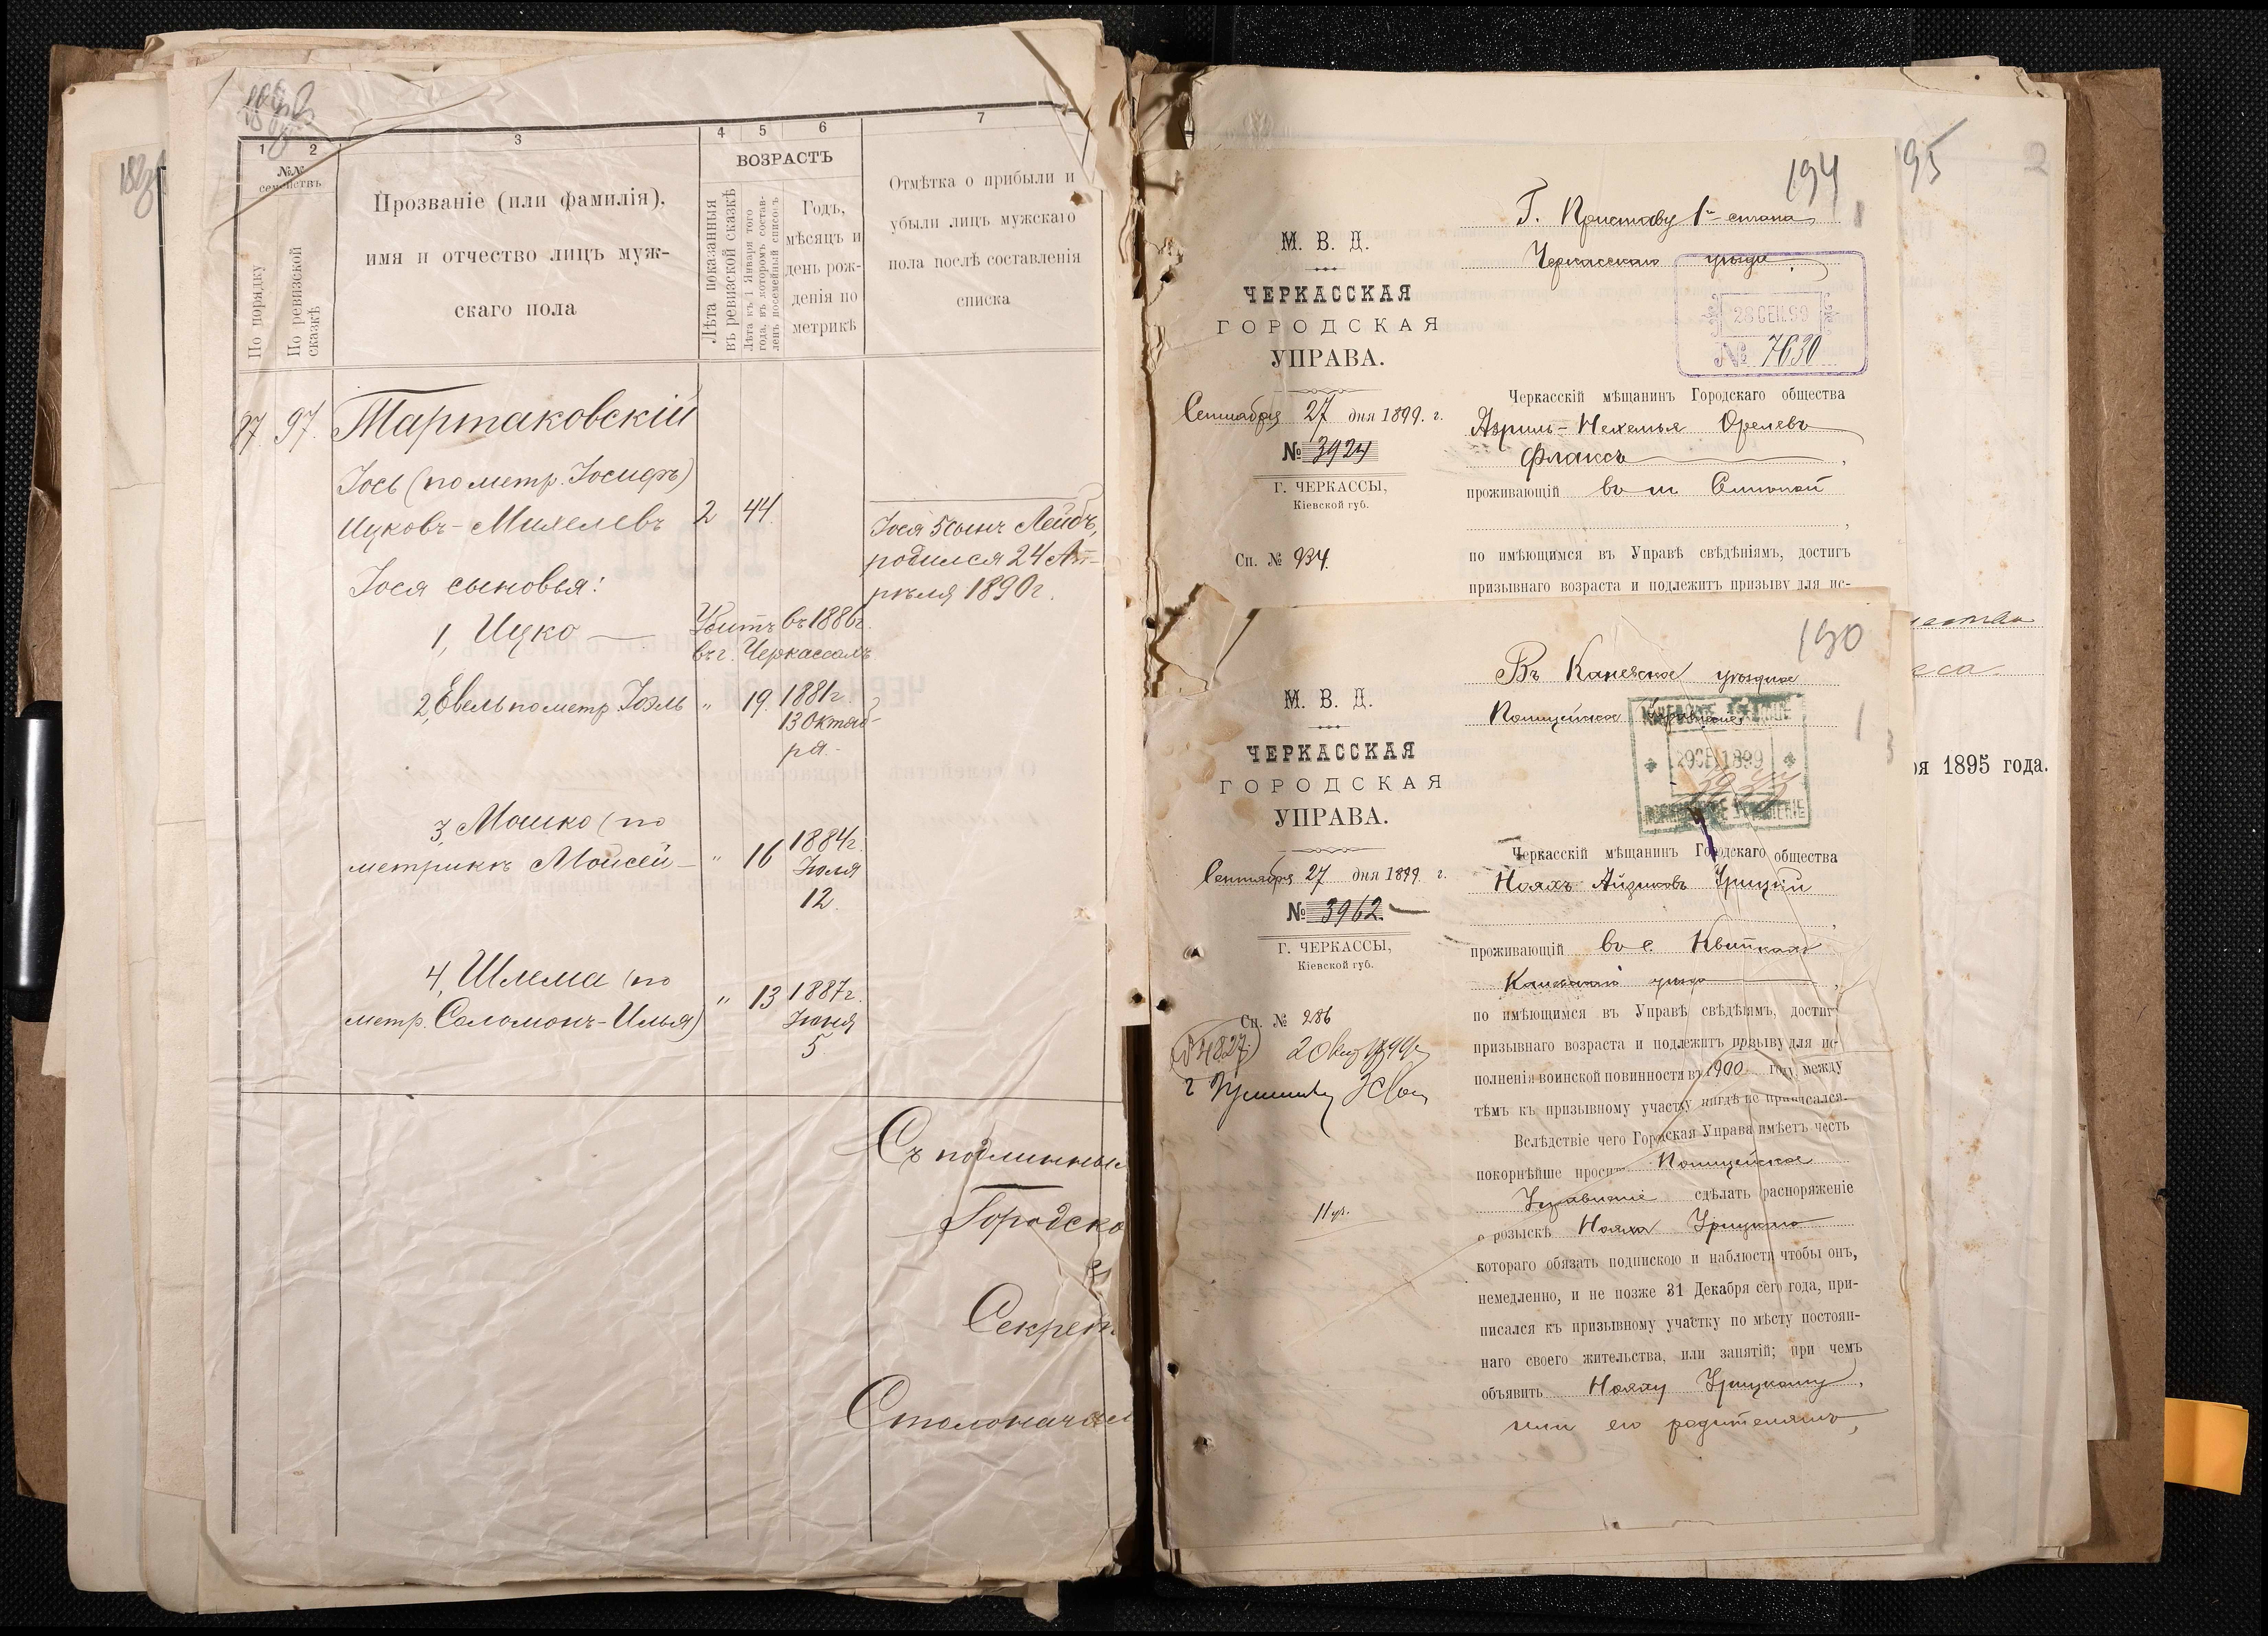 1 2 3 4 5 6 7
№№ семействъ
По порядку
По ревизской сказкѣ
Прозваніе (или фамилія),
имя и отчество лицъ муж-
скаго пола
ВОЗРАСТЪ
Лѣта показанныя
въ ревизской сказкѣ
Лѣта къ 1 Января того
года, въ которомъ состав-
ленъ посемейный списокъ
Годъ,
мѣсяцъ и
день рож-
денія по
метрикѣ
Отмѣтка о прибыли и
убыли лицъ мужскаго
пола послѣ составленія
списка
87 97. Тартаковскій
Іось (по метр. Іосифъ)
Ицковъ-Михелевъ 2 44
Іося 5 сынъ Лейбъ,
родился 24 Ап-
рѣля 1890 г.
Іося сыновья:
1, Ицко — Убитъ въ 1886 г.
въ г. Черкассахъ
2, Евель по метр. Іоэль " 19 1881 г.
13 Октяб-
ря.
3, Мошко (по
метрикѣ Моисей — " 16 1884 г.
Іюля
12.
4, Шлема (по
метр. Соломонъ-Илья) " 13 1887 г.
Іюня
5
Съ подлинны
Городско
Секрет
Столоначал
194
Г. Приставу 1го стана
Черкасскаго уѣзда
28 СЕН. 99
№ 7630
М. В. Д.
ЧЕРКАССКАЯ
ГОРОДСКАЯ
УПРАВА.
Сентября 27 дня 1899. г.
№ 3924
Г. ЧЕРКАССЫ,
Кіевской губ.
Сп. № 934.
Черкасскій мѣщанинъ Городскаго общества
Азриль-Нехемья Орелевъ
Флаксъ
проживающій въ м.
по имѣющимся въ Управѣ свѣдѣніямъ, достигъ
призывнаго возраста и подлежитъ призыву для ис-
190
Въ Каневское уѣздное
Полицейское Управленіе
29 СЕН 1899
М. В. Д.
ЧЕРКАССКАЯ
ГОРОДСКАЯ
УПРАВА.
Сентября 27 дня 1899 г.
№ 3962.
Г. ЧЕРКАССЫ,
Кіевской губ.
Сп. № 286
Черкасскій мѣщанинъ Городскаго общества
Ноахъ Айзиковъ Урицкій
проживающій въ с. Квиткахъ
Каневскаго уѣзда
по имѣющимся въ Управѣ свѣдѣніямъ, достигъ
призывнаго возраста и подлежитъ призыву для ис-
полненія воинской повинности въ 1900 году, между
тѣмъ къ призывному участку нигдѣ не приписался.
Вслѣдствіе чего Городская Управа имѣетъ честь
покорнѣйше проситъ Полицейское
Управленіе сдѣлать распоряженіе
о розыскѣ Ноаха Урицкаго
котораго обязать подпискою и наблюсти чтобы онъ,
немедленно, и не позже 31 Декабря сего года, при-
писался къ призывному участку по мѣсту постоян-
наго своего жительства, или занятій; при чемъ
объявить Ноаху Урицкому,
или его родителямъ,
195
2
ря 1895 года.